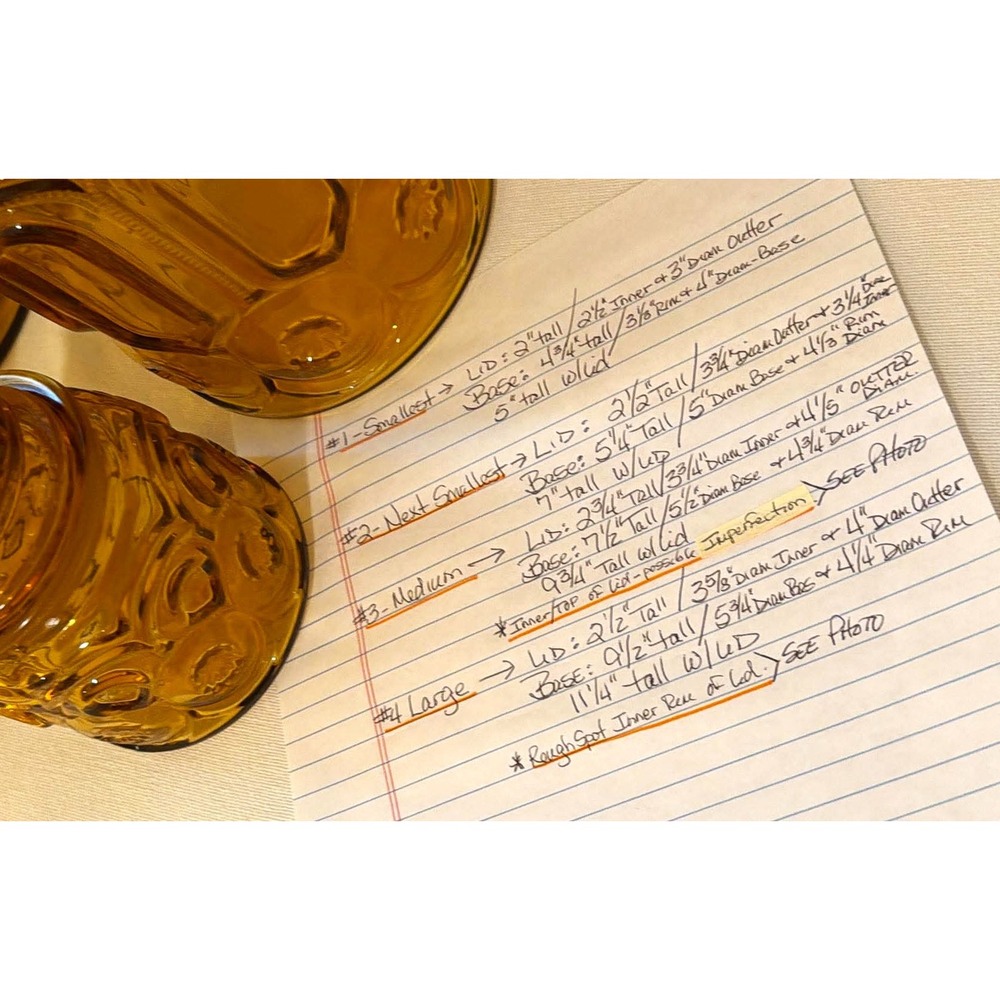 #1-Smallest → LID: 2" tall / 2 1/2" Inner & 3" Diam Outter
Base: 4 3/4" tall / 3 1/3" Rim & 4" Diam-Base
5" tall w/lid
#2-Next Smallest → LID: 2 1/2" Tall / 3 3/4" Diam Outter & 3 1/4" Diam Inner
Base: 5 1/4" Tall / 5" Diam Base & 4 1/3" Rim Diam
7" tall w/LID
#3-Medium → LID: 2 3/4" Tall / 3 3/4" Diam Inner & 4 1/5" OUTTER DIAM.
Base: 7 1/2" Tall / 5 1/2" Diam Base & 4 3/4" Diam Rim
9 3/4" Tall w/lid
* Inner/Top of lid-possible Imperfection > SEE PHOTO
#4 Large → LID: 2 1/2" Tall / 3 5/8" Diam Inner & 4" Diam Outter
Base: 9 1/2" tall / 5 3/4" Diam Bas & 4 1/4" Diam Rim
11 1/4" tall w/LID
* Rough Spot Inner Rim of lid. > SEE PHOTO